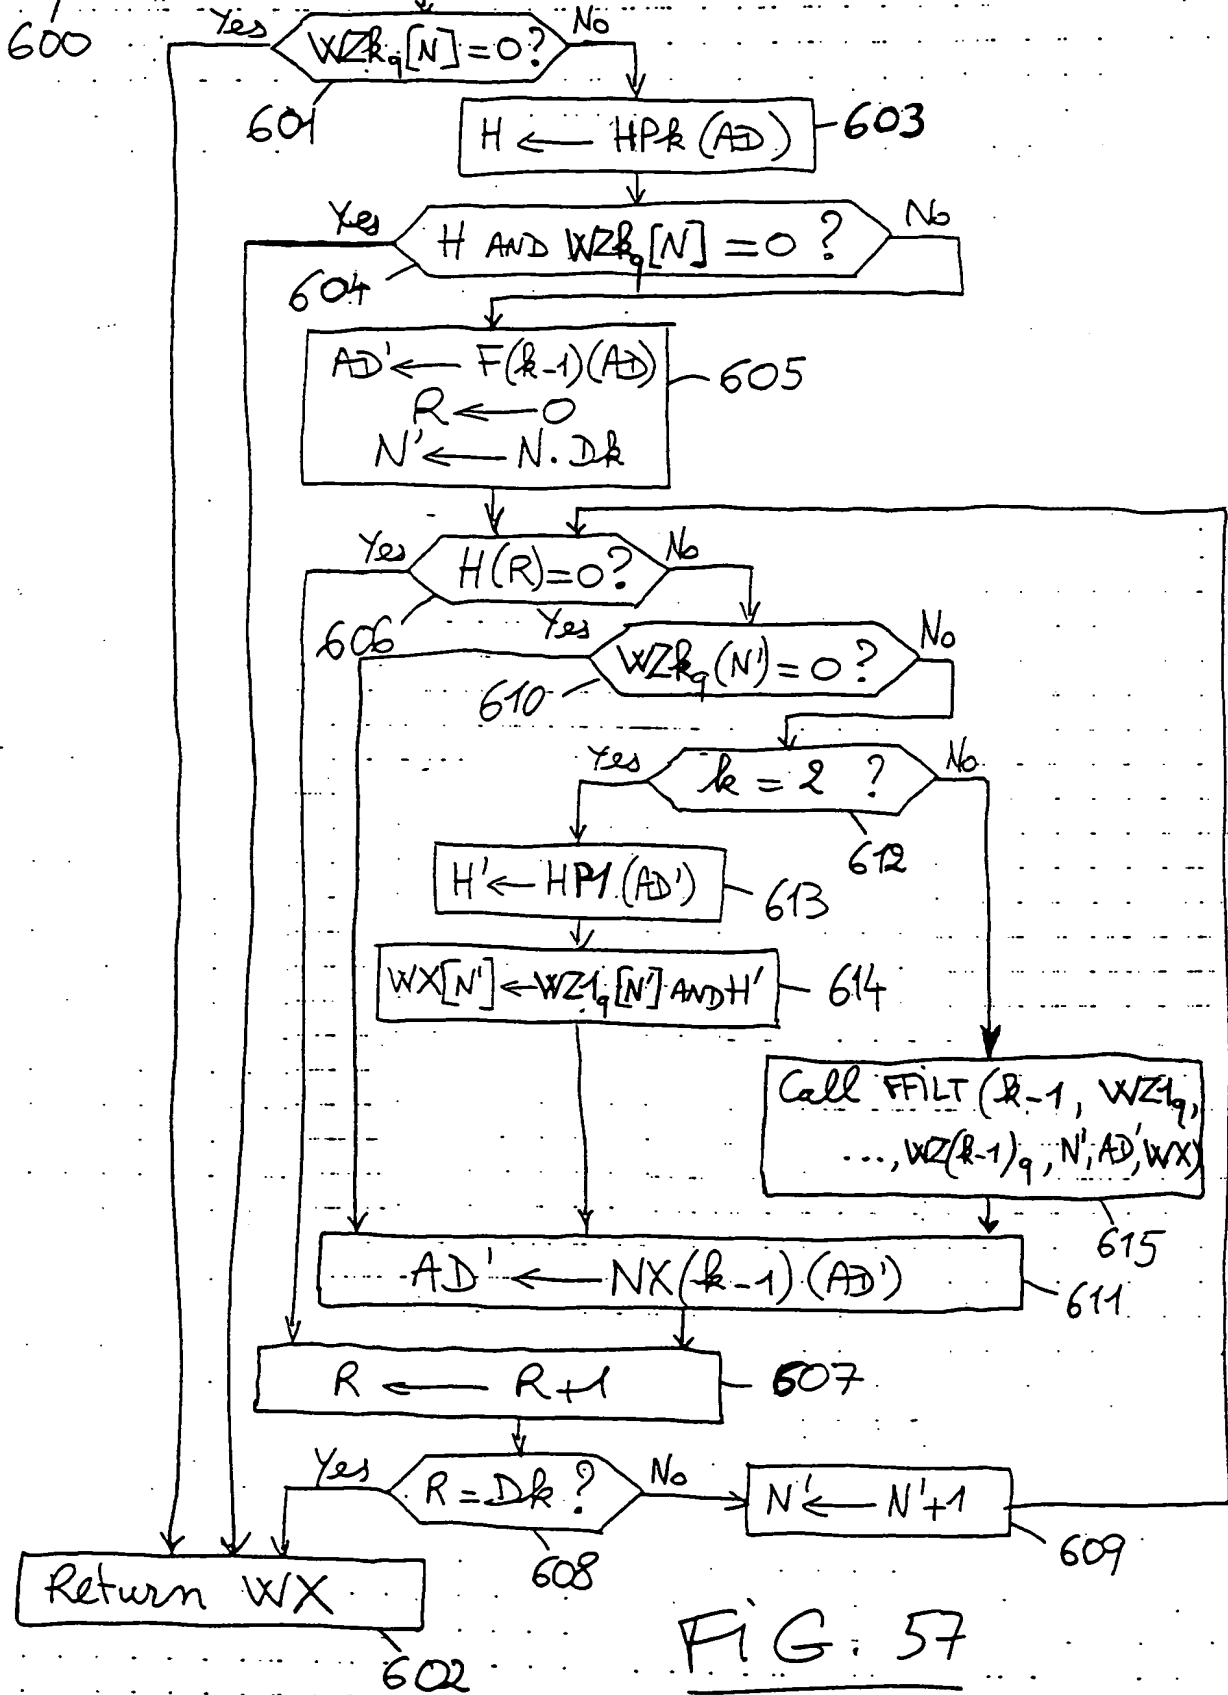 600
Yes
WZkq[N]=0?
No
601
H ← HPk(AD)
603
Yes
H AND WZkq[N] = 0 ?
No
604
AD' ← F(k-1)(AD)
R ← 0
N' ← N. Dk
605
Yes
H(R)=0?
No
606
Yes
WZkq(N')=0?
No
610
Yes
k = 2 ?
No
612
H' ← HP1.(AD')
613
WX[N'] ← WZ1q[N'] AND H'
614
Call FFiLT(k-1, WZ1q,
..., WZ(k-1)q, N', AD', WX)
615
AD' ← NX(k-1)(AD')
611
R ← R+1
607
Yes
R = Dk ?
No
608
N' ← N'+1
609
Return WX
602
FiG. 57